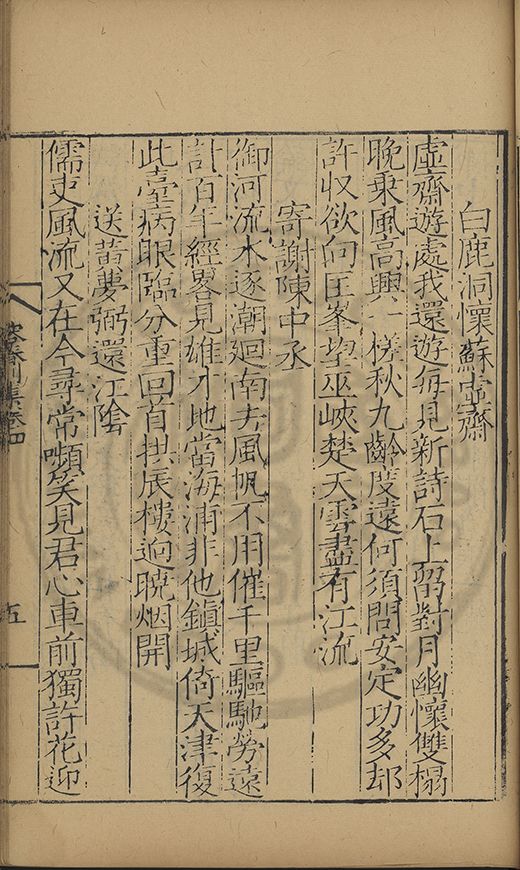 白鹿洞懷蘇虛齋
虛齋遊處我還遊每見新詩石上畱對月幽懷雙榻
晚乗風高興一槎秋九齡度遠何須問安定功多却
許収欲向匡峯望巫峽楚天雲盡有江流
寄謝陳中丞
御河流水逐潮廻南去風帆不用催千里驅馳勞遠
計百年經畧見雄才地當海浦非他鎮城倚天津復
此臺病眼臨分重回首拱辰樓逈曉烟開
送黃夢弼還江陰
儒吏風流又在今尋常嚬笑見君心車前獨許花迎
五